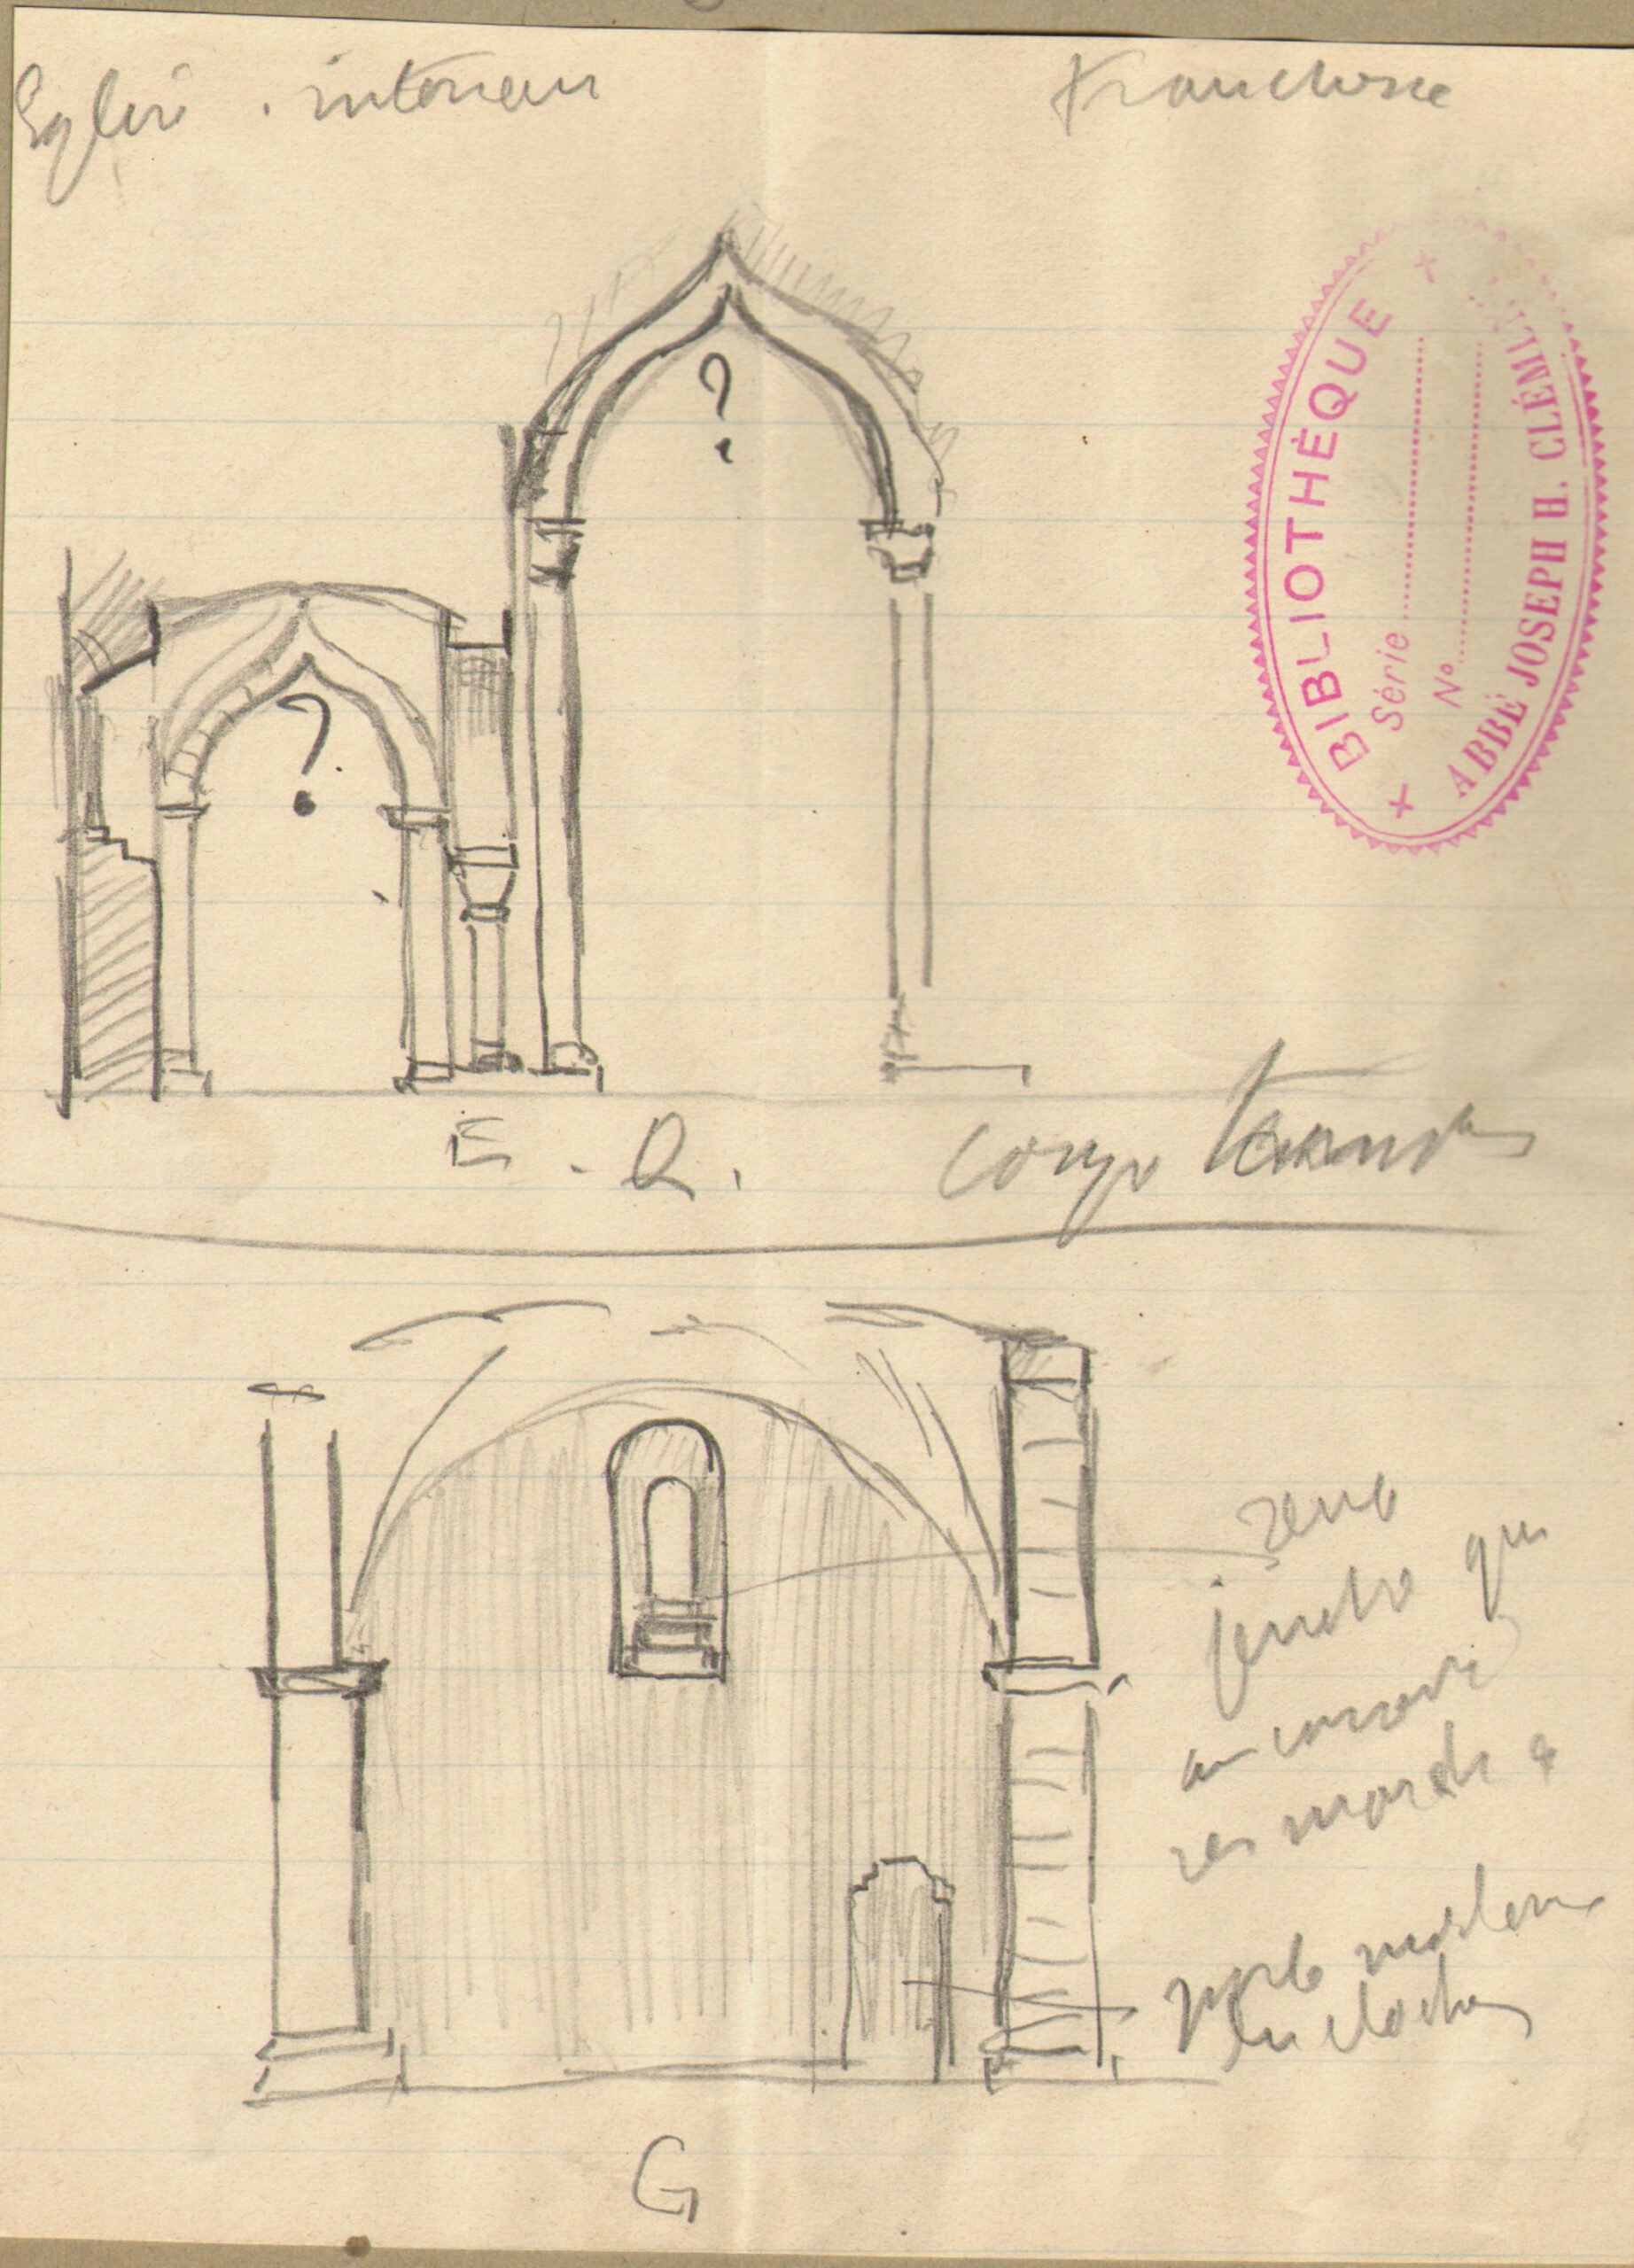 Eglise . intérieur
Franchesse
?
?
BIBLIOTHÈQUE
Série
N°
ABBÉ JOSEPH H. CLÉM
E . Q.
Coupe
seule
fenêtre qui
ait conservé
ses
porte moderne
du clocher
G